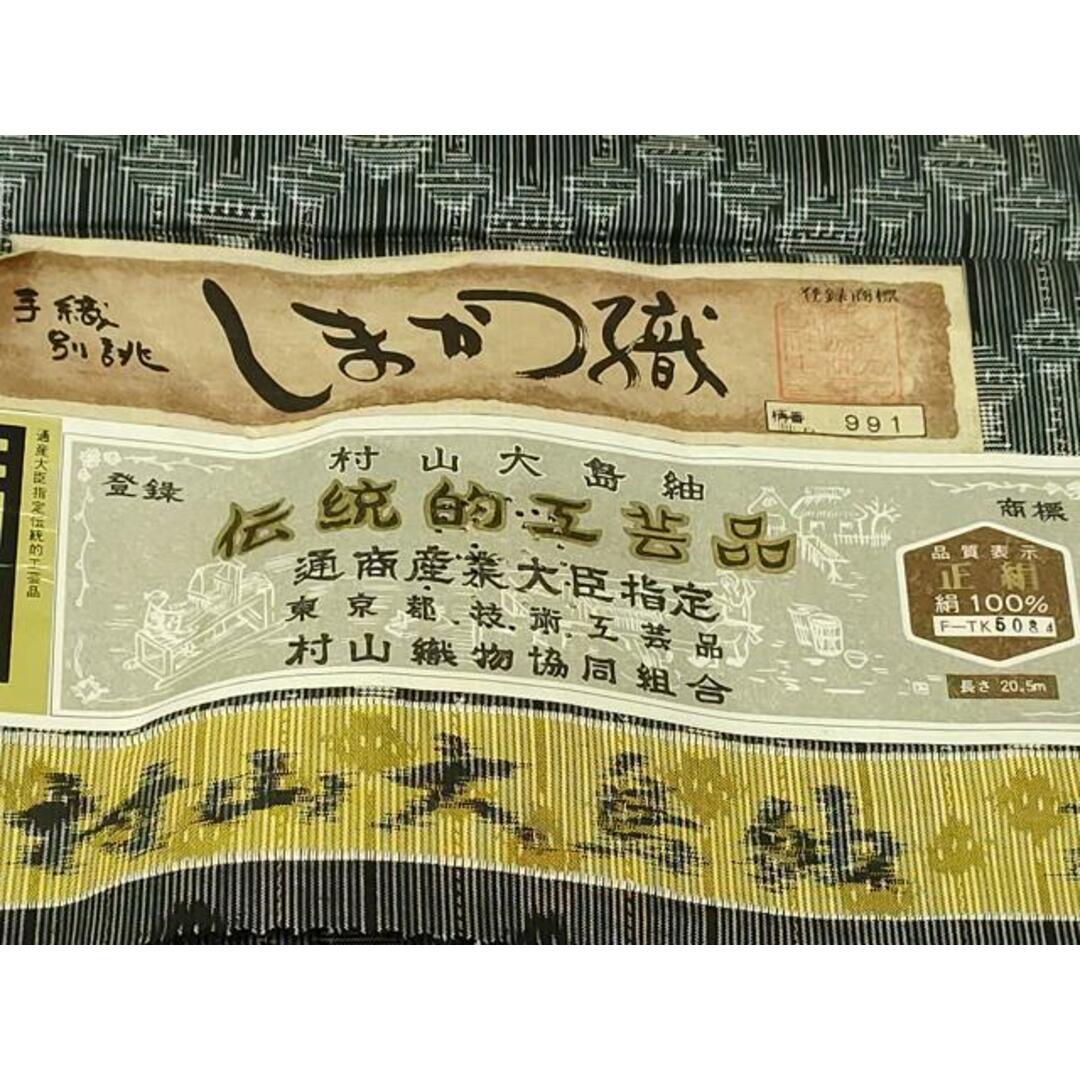 手織
別誂
しまかつ織
登録商標
柄番 991
通産大臣指定伝統的工芸品
村山大島紬
登録
商標
伝統的工芸品
通商産業大臣指定
東京都技術工芸品
村山織物協同組合
品質表示
正絹
絹100%
F-TK5084
長さ 20.5m
村山大島紬